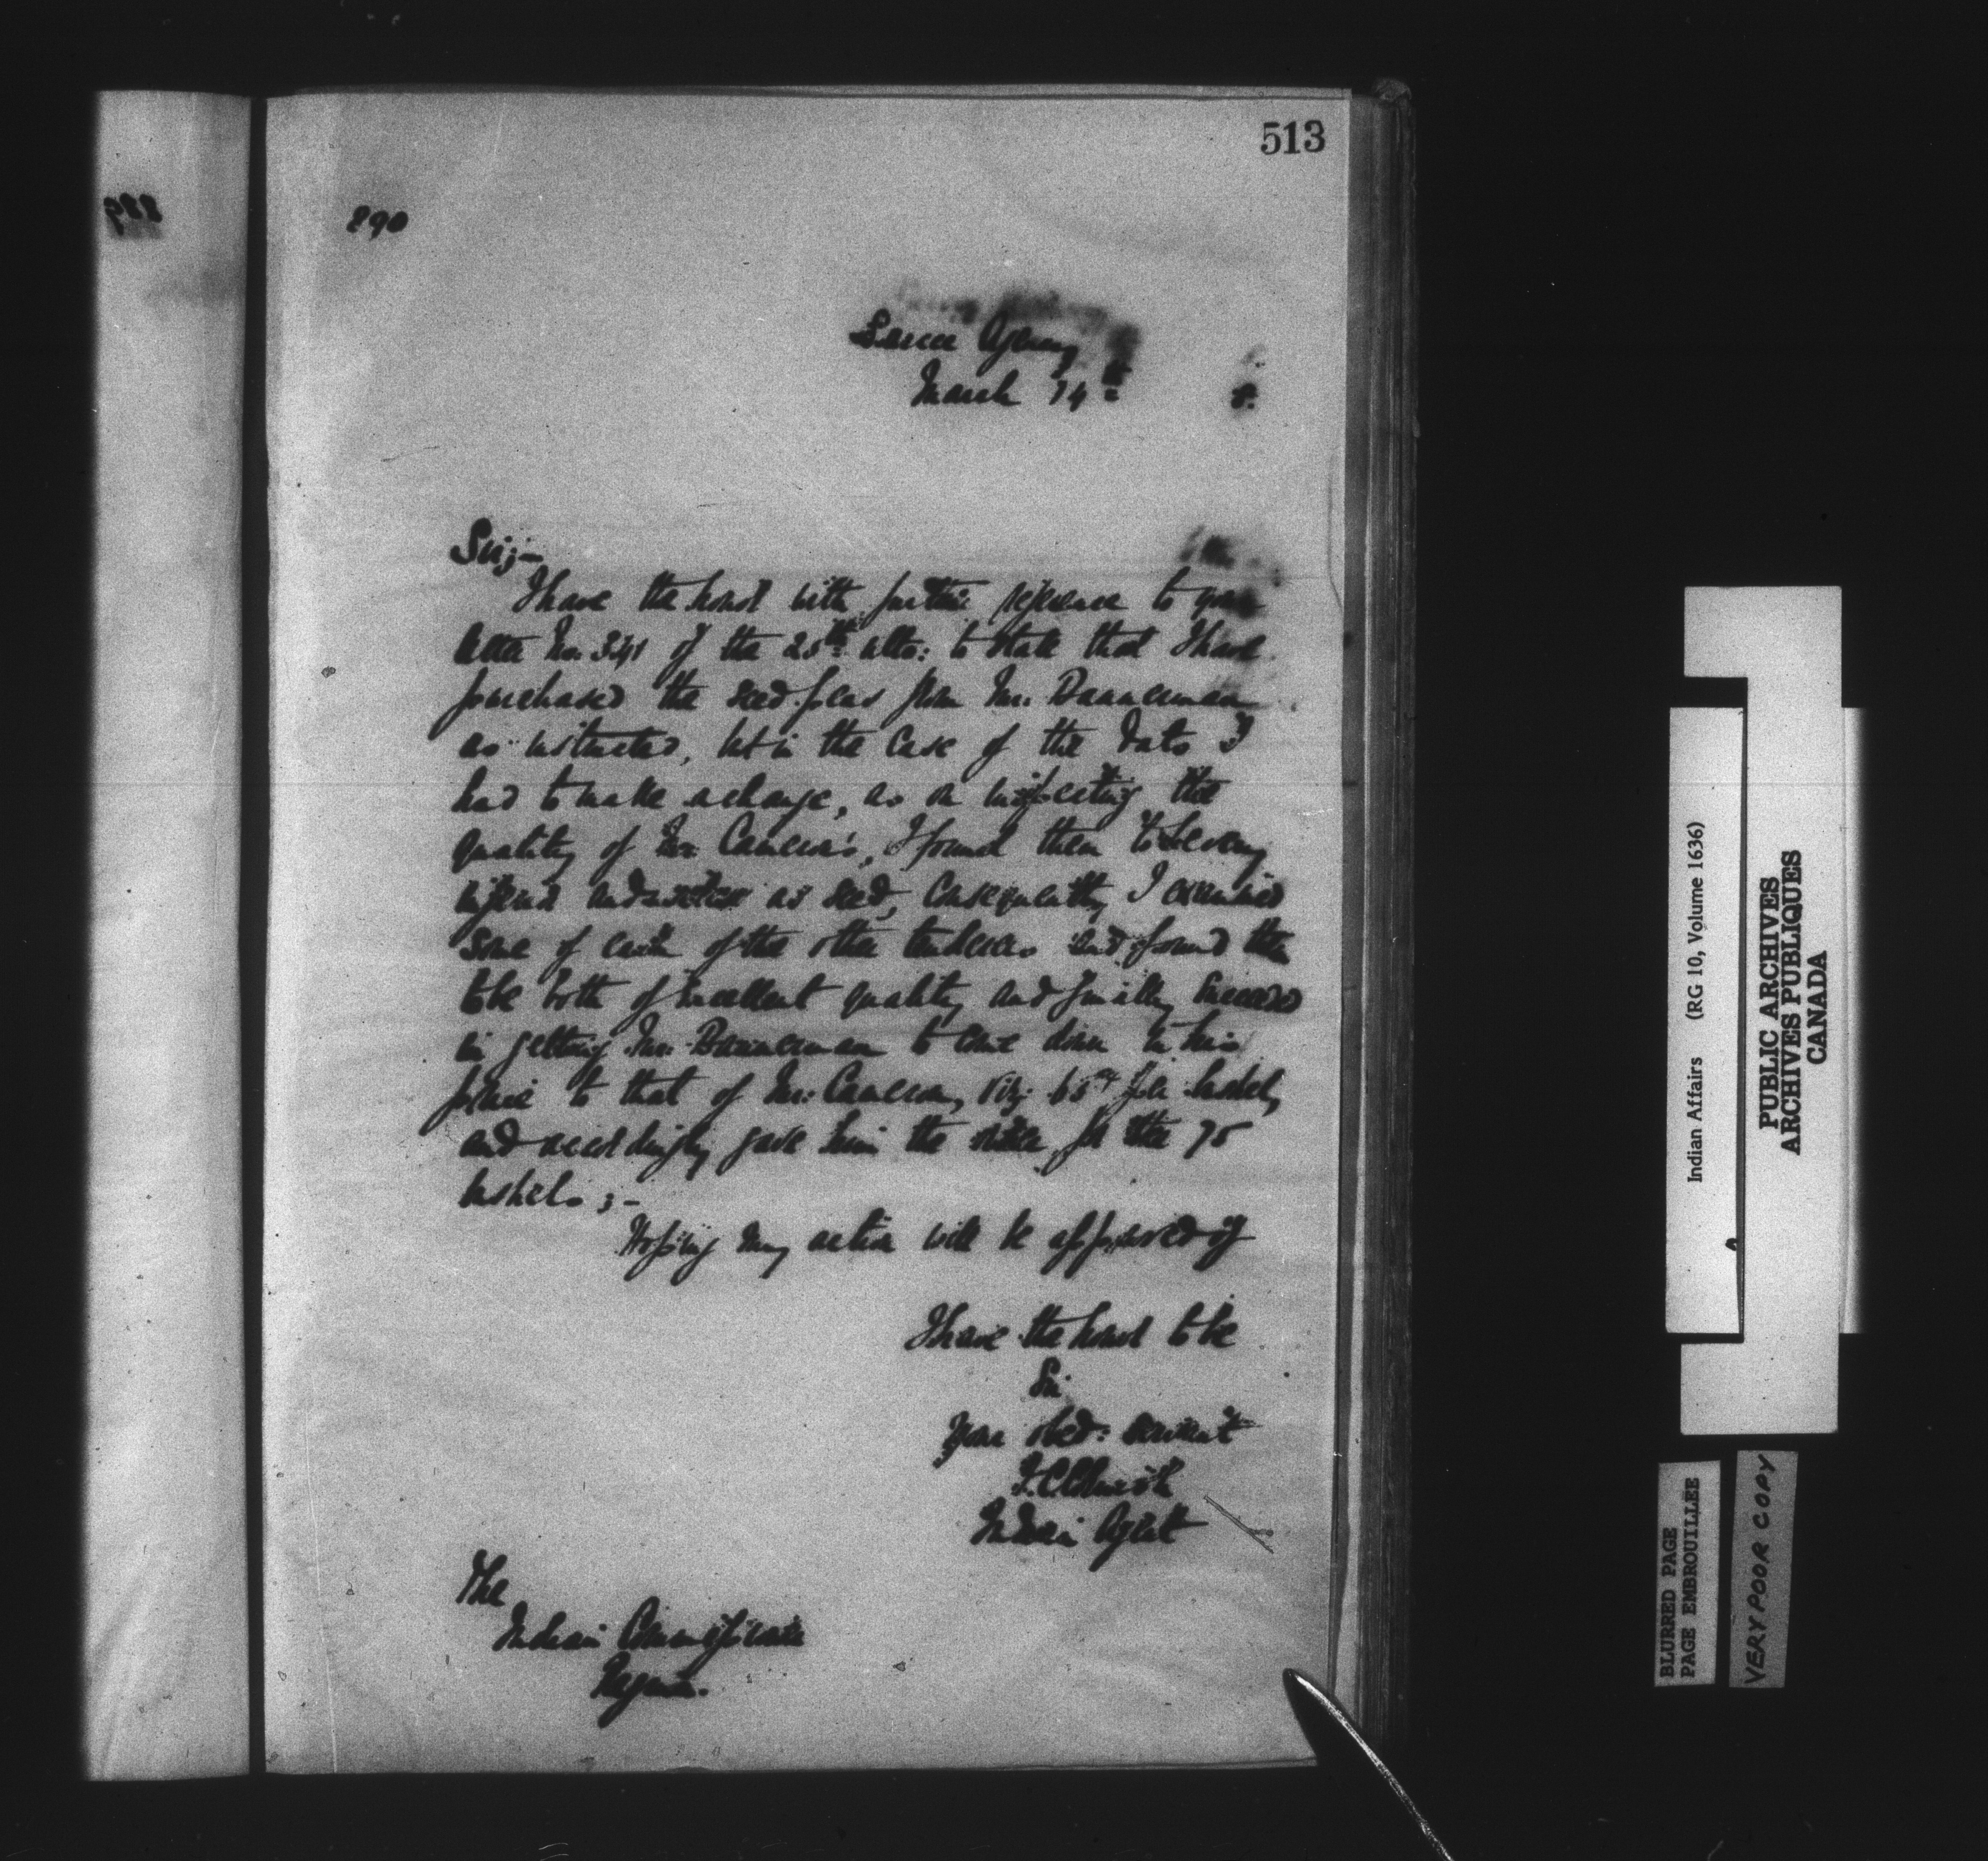 513
889
890
Sarcee Agency
March 14th 8.
Sir;-
I have the honor with further reference to your
letter No. 341 of the 25th ulto: to state that I have
purchased the seed peas from Mr. Bannerman
as instructed, but in the case of the oats I
had to make a change, as on inspecting the
quality of Mr. Cameron's, I found them to be very
inferior and useless as seed, consequently I examined
some of each of the other tenderers and found them
to be both of excellent quality and finally succeeded
in getting Mr. Bannerman to come down in his
price to that of Mr. Cameron, viz. 65cts per bushel,
and accordingly gave him the order for the 75
bushels;-
Hoping my action will be approved of
I have the honor to be
Sir
Your obed: servant
F.C. Cornish
Indian Agent
The
Indian Commissioner
Regina.
Indian Affairs (RG 10, Volume 1636)
PUBLIC ARCHIVES
ARCHIVES PUBLIQUES
CANADA
BLURRED PAGE
PAGE EMBROUILLEE
VERY POOR COPY